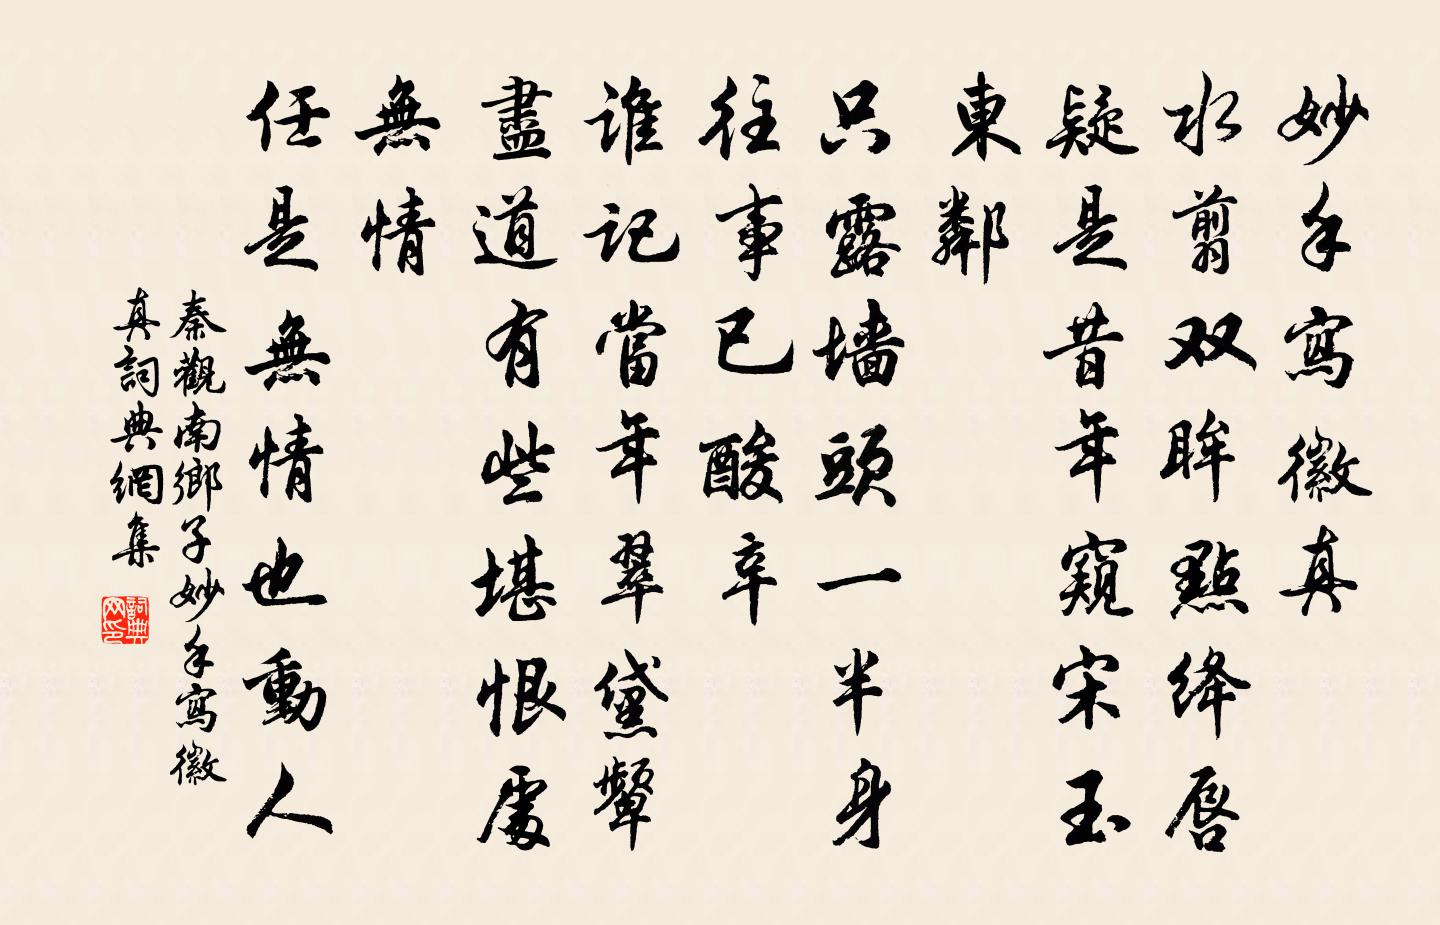 妙手寫徽真
水翦双眸點绛唇
疑是昔年窺宋玉
東鄰
只露墙頭一半身
往事已酸辛
谁記當年翠黛顰
盡道有些堪恨處
無情
任是無情也動人
秦觀南鄉子妙手寫徽
真詞典網集
詞典
网印